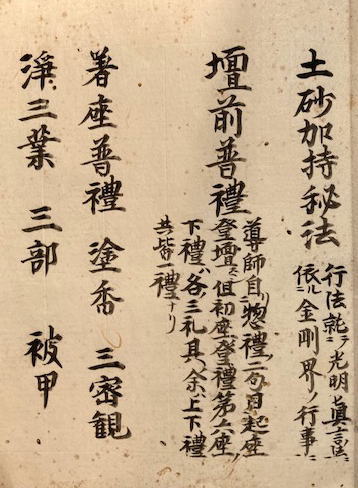 土砂加持秘法
行法就テ光明眞言法ニ
依ル金剛界ノ行事ニ
壇前普禮
導師自惣禮二 目起座
登壇ス但初座ノ登禮第六座ノ
下禮ハ各三礼具 余ハ上下禮
共皆一禮ナリ
著座普禮 塗香 三密観
淨三業 三部 被甲